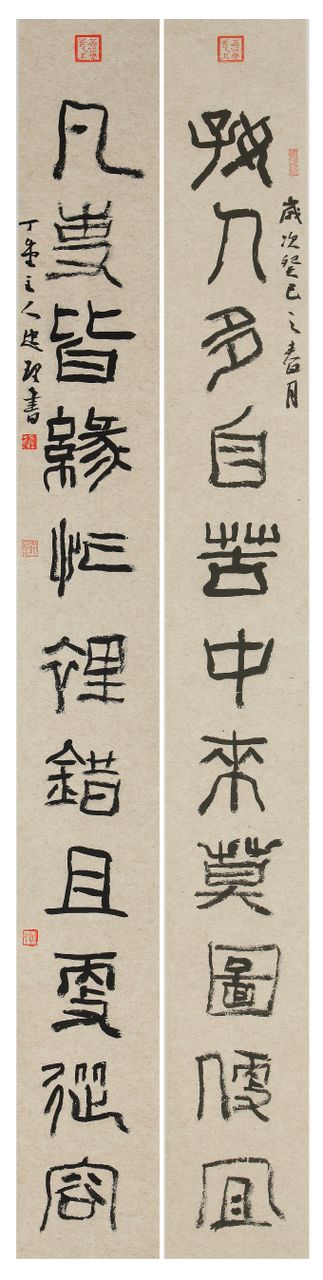 好人多自苦中來莫圖便宜
歲次癸巳之春月
凡事皆緣忙裡錯且更從容
之人建書